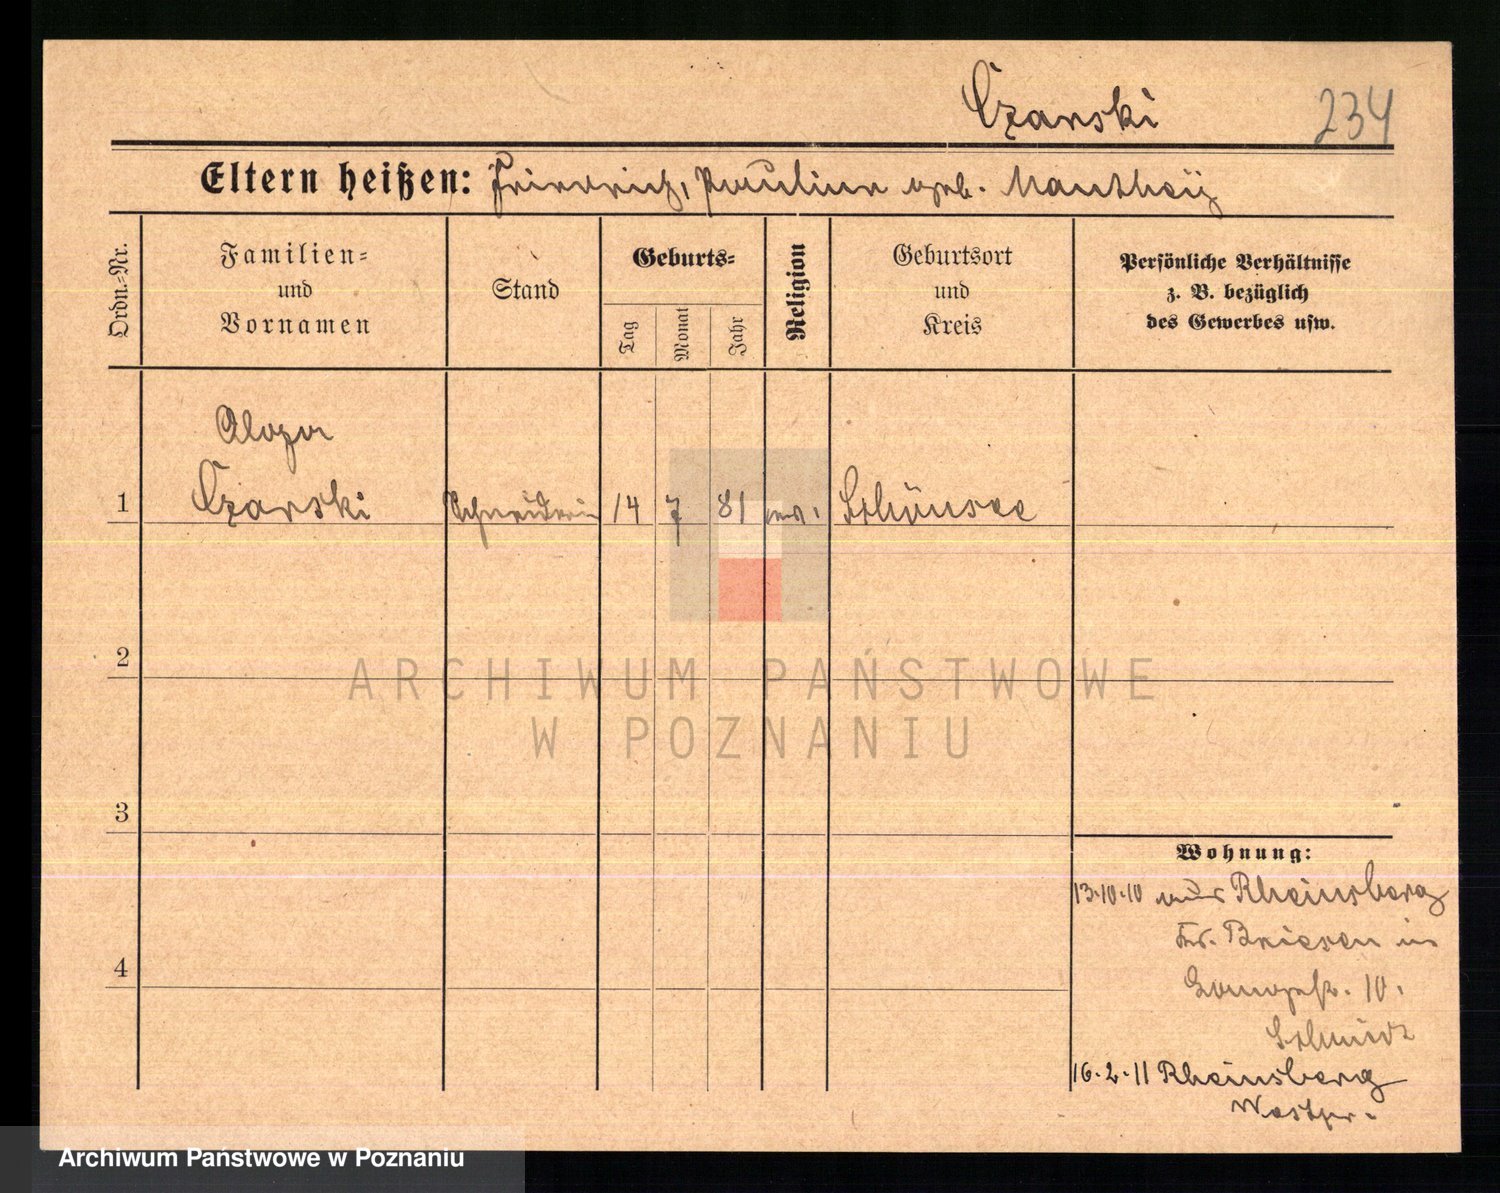 Czarski 234
Eltern heißen: Friedrich, Pauline geb. Manthey
Ordn.=Nr.
Familien=
und
Vornamen
Stand
Geburts=
Tag
Monat
Jahr
Religion
Geburtsort
und
Kreis
Persönliche Verhältnisse
z. B. bezüglich
des Gewerbes usw.
Czarski
1 Schneiderin 14 7 81 Schönsee
2
3
4
Wohnung:
13.10.10 aus Rheinsberg
Kr. Briesen in
10.
Schmidt
16.2.11 Rheinsberg
Westpr.
ARCHIWUM PAŃSTWOWE
W POZNANIU
Archiwum Państwowe w Poznaniu